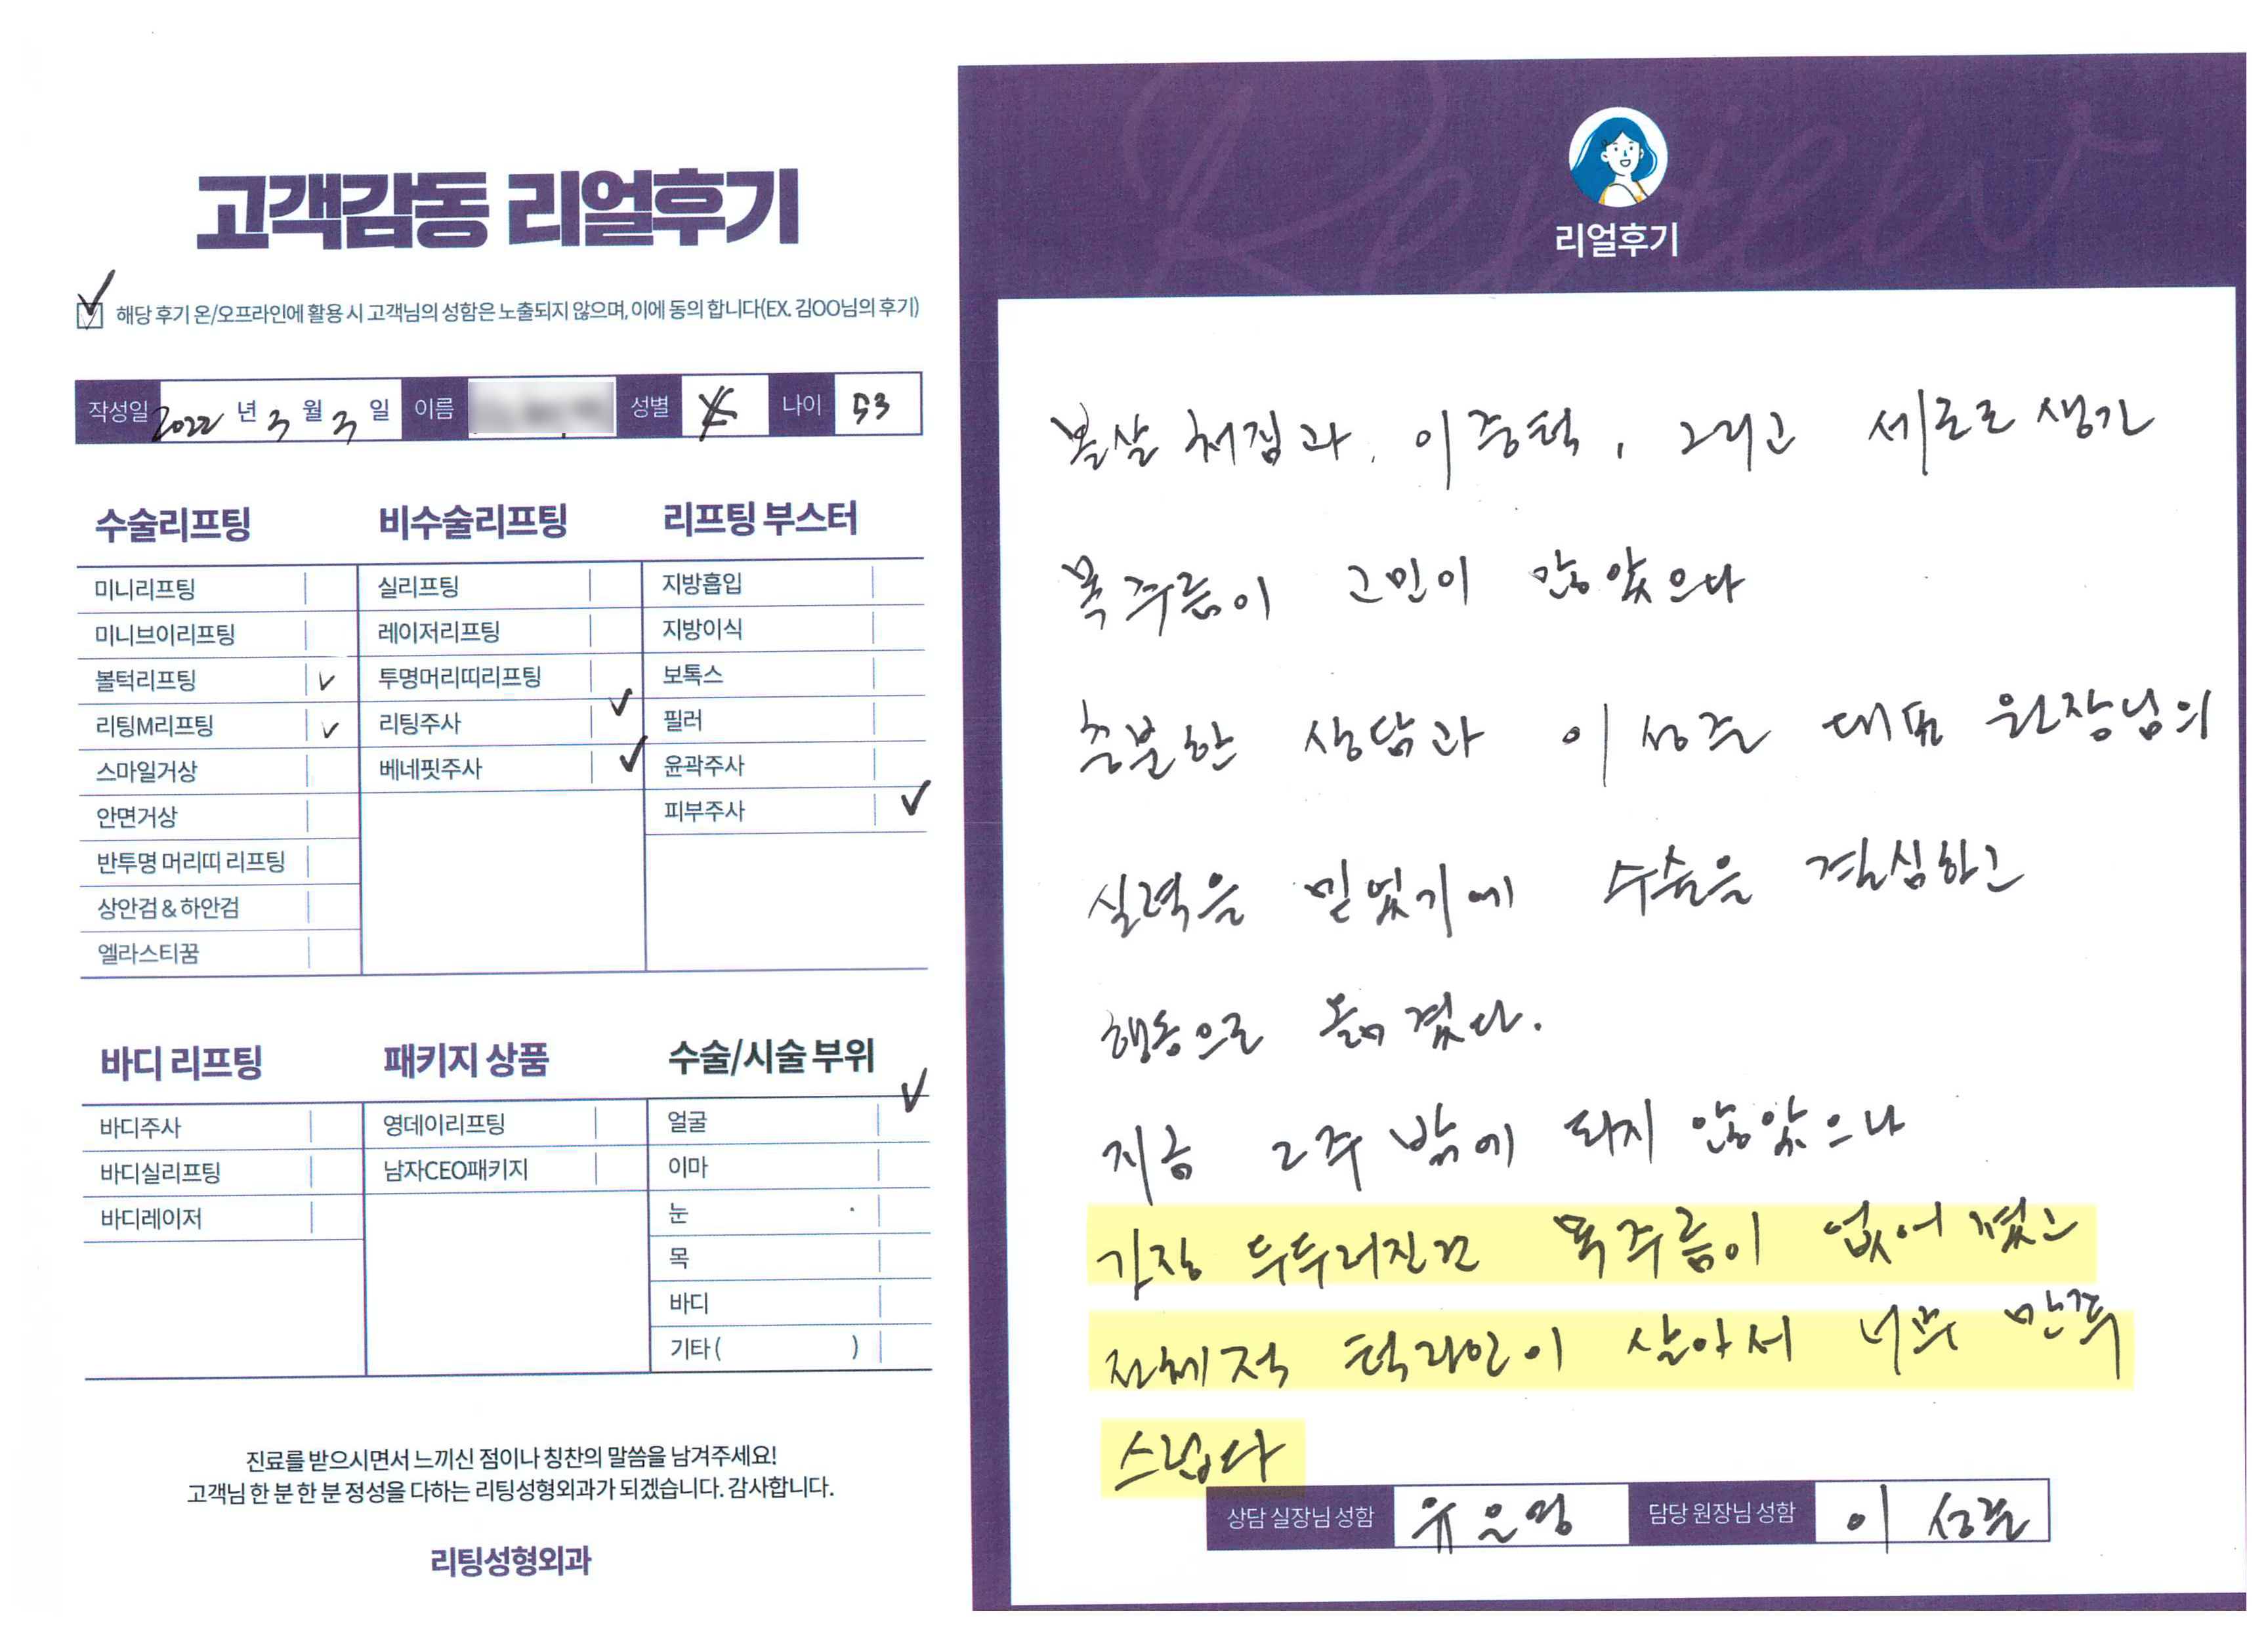 고객감동 리얼후기
해당 후기 온/오프라인에 활용 시 고객님의 성함은 노출되지 않으며, 이에 동의 합니다(EX. 김OO님의 후기)
작성일 2022 년 3 월 3 일 이름 성별 女 나이 53
수술리프팅
미니리프팅
미니브이리프팅
볼턱리프팅
리팅M리프팅
스마일거상
안면거상
반투명 머리띠 리프팅
상안검 & 하안검
엘라스티꿈
비수술리프팅
실리프팅
레이저리프팅
투명머리띠리프팅
리팅주사
베네핏주사
리프팅 부스터
지방흡입
지방이식
보톡스
필러
윤곽주사
피부주사
바디 리프팅
바디주사
바디실리프팅
바디레이저
패키지 상품
영데이리프팅
남자CEO패키지
수술/시술 부위
얼굴
이마
눈
목
바디
기타 ( )
진료를 받으시면서 느끼신 점이나 칭찬의 말씀을 남겨주세요!
고객님 한 분 한 분 정성을 다하는 리팅성형외과가 되겠습니다. 감사합니다.
리팅성형외과
Review
리얼후기
볼살 처짐과, 이중턱, 그리고 세로로 생긴
목주름이 고민이 많았으나
충분한 상담과 이성준 대표 원장님의
실력을 믿었기에 수술을 결심하고
행동으로 옮겼다.
지금 2주 밖에 되지 않았으나
가장 두두러진건 목주름이 없어졌고
전체적 턱라인이 살아서 너무 만족
스럽다
상담 실장님 성함 유은영 담당 원장님 성함 이성준